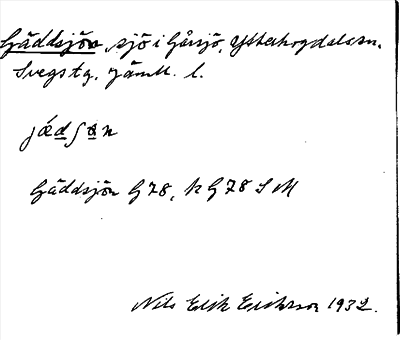 Gäddsjön, sjö i Gårsjö, Ytterhogdals sn.
Svegs tg. Jämtl. l.
jǽdʃǝn
Gäddsjön G 78, k G 78 S M
Nils Erik Eriksson 1932.